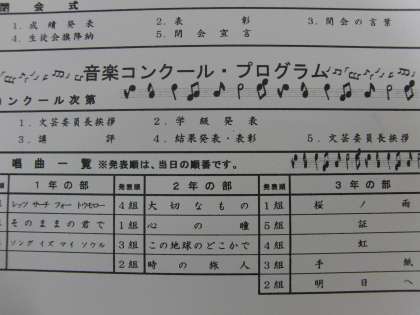 閉会式
1. 成績発表 2. 表彰 3. 閉会の言葉
4. 生徒会旗降納 5. 閉会宣言
音楽コンクール・プログラム
コンクール次第
1. 文芸委員長挨拶 2. 学級発表
3. 講評 4. 結果発表・表彰 5. 文芸委員長挨拶
唱曲一覧 ※発表順は、当日の順番です。
1年の部 発表順 2年の部 発表順 3年の部
レッツ サーチ フォー トゥモロー 4組 大切なもの 1組 桜ノ雨
そのままの君で 1組 心の瞳 5組 証
ソング イズ マイ ソウル 3組 この地球のどこかで 4組 虹
2組 時の旅人 3組 手紙
2組 明日へ